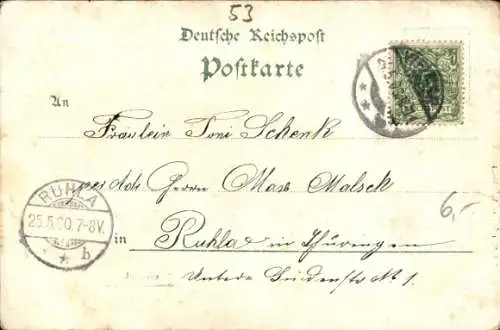 53
Deutsche Reichspost
Postkarte
An
Fräulein Toni Schenk
Herrn Max Malsch
in Ruhla in Thüringen
Untere Lindenstr. № 1.
RUHLA
25.5.00.7-8V.
* b
6,-